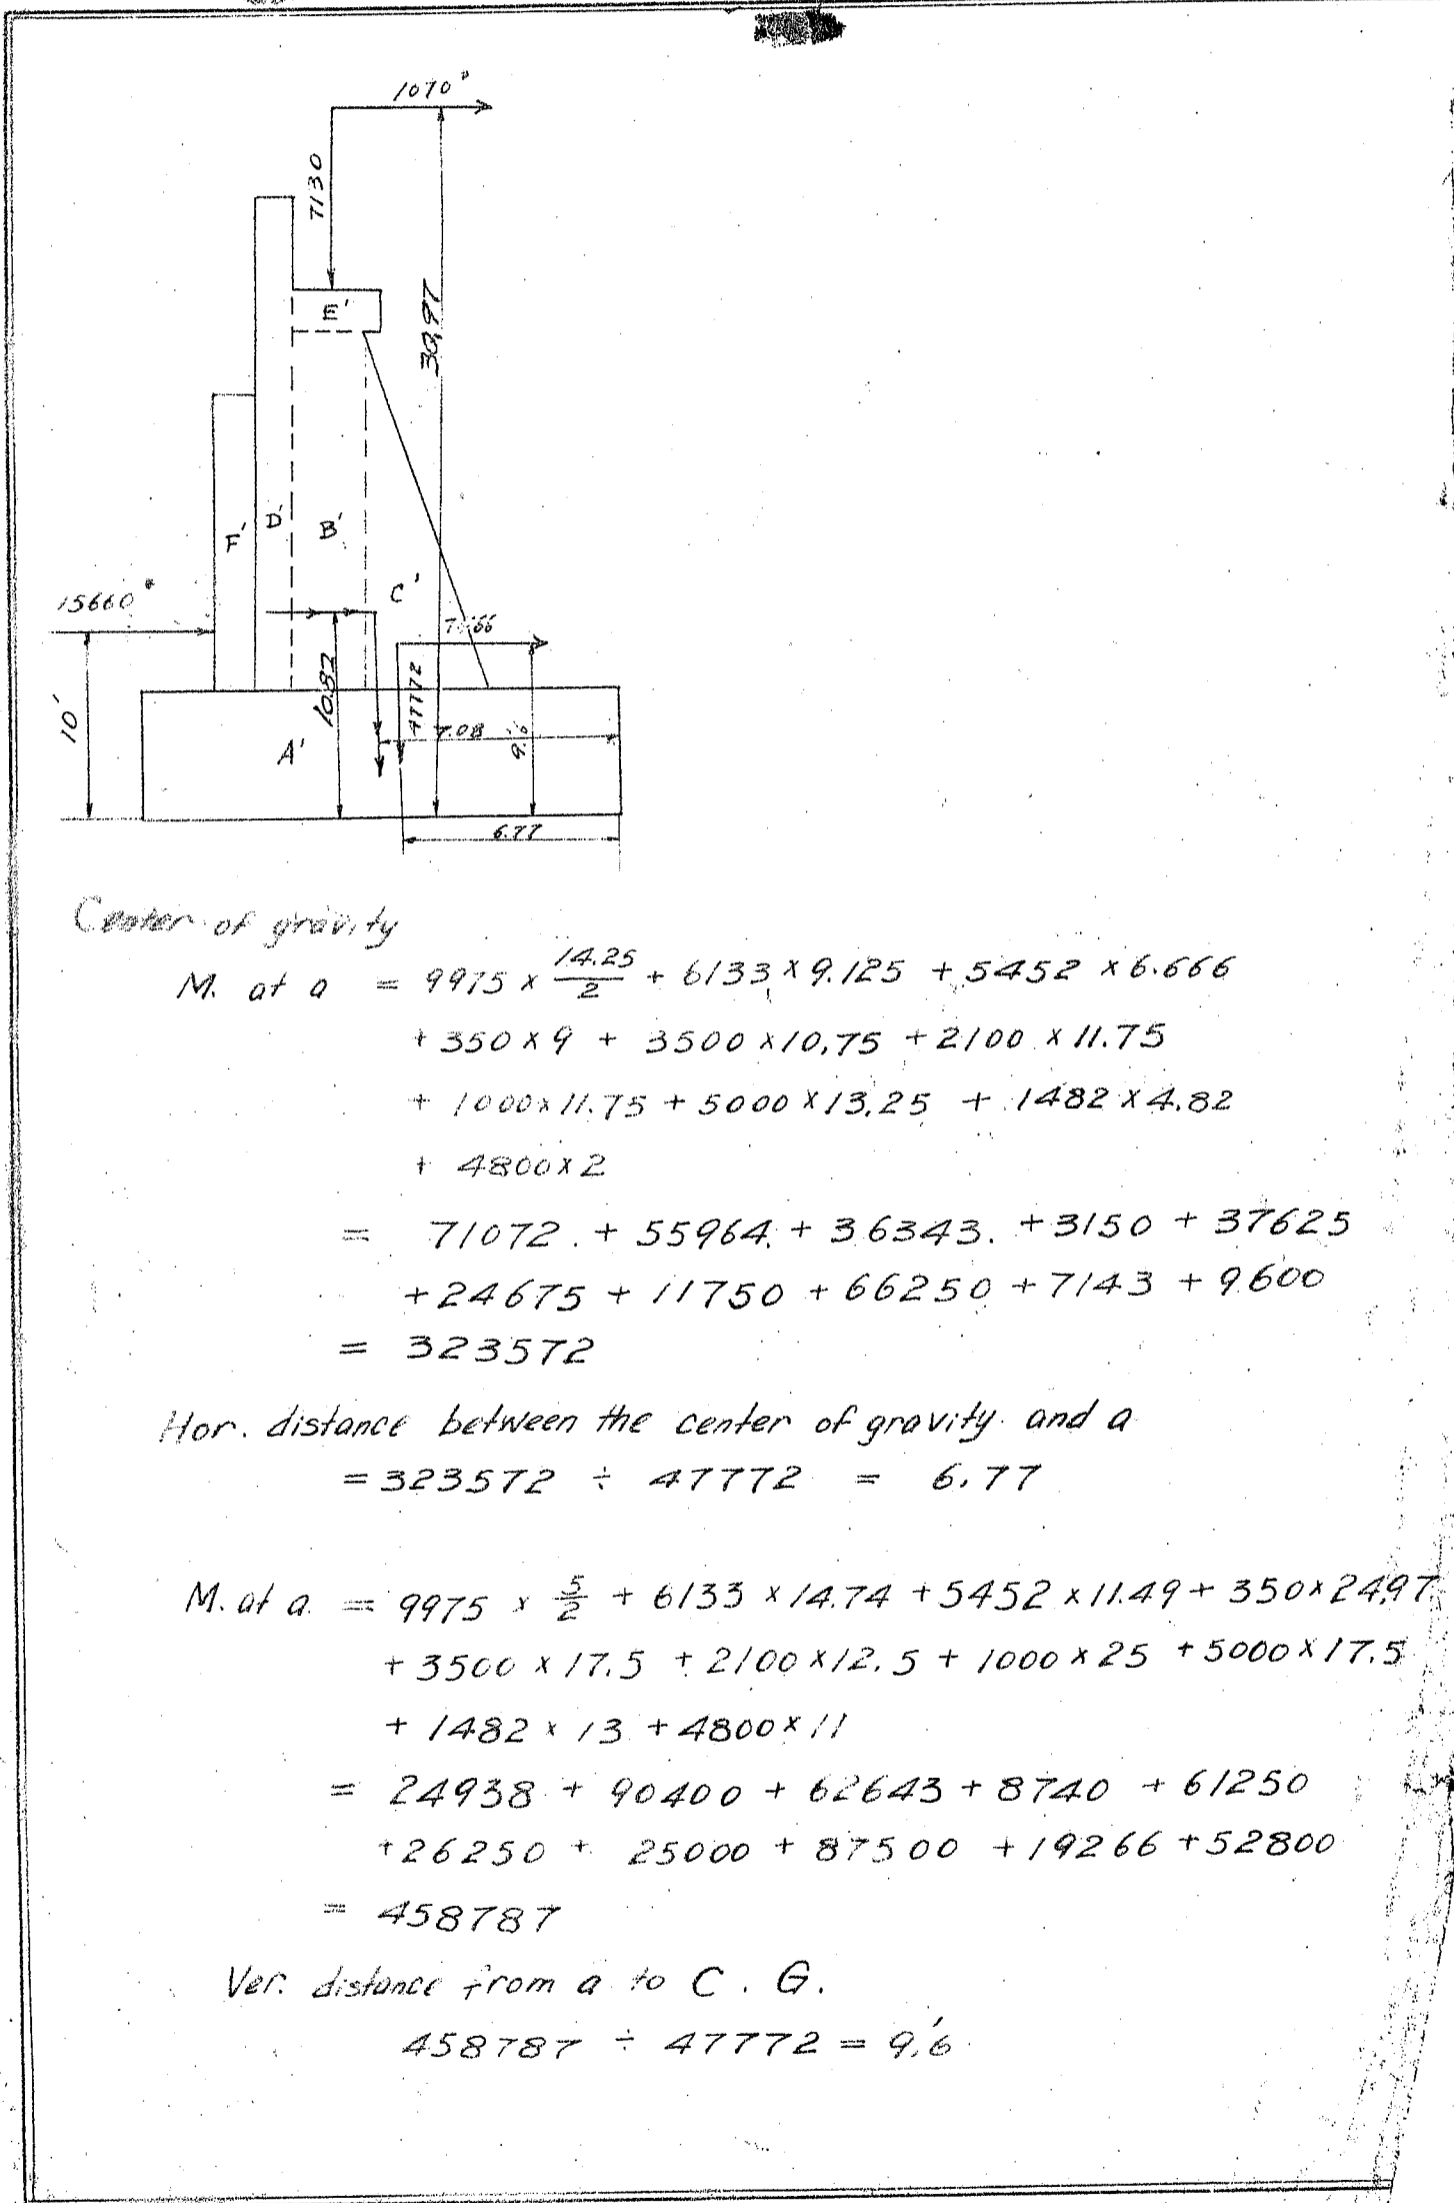 1070#
7130
E'
30.97
F'
D'
B'
C'
15660#
10'
10.82
47772
7.08
9.6'
A'
6.77
Center of gravity
M. at a = 9975 × 14.25/2 + 6133 × 9.125 + 5452 × 6.666
+ 350 × 9 + 3500 × 10.75 + 2100 × 11.75
+ 1000 × 11.75 + 5000 × 13.25 + 1482 × 4.82
+ 4800 × 2
= 71072. + 55964. + 36343. + 3150 + 37625
+ 24675 + 11750 + 66250 + 7143 + 9600
= 323572
Hor. distance between the center of gravity and a
= 323572 ÷ 47772 = 6.77
M. at a. = 9975 × 5/2 + 6133 × 14.74 + 5452 × 11.49 + 350 × 24.97
+ 3500 × 17.5 + 2100 × 12.5 + 1000 × 25 + 5000 × 17.5
+ 1482 × 13 + 4800 × 11
= 24938 + 90400 + 62643 + 8740 + 61250
+ 26250 + 25000 + 87500 + 19266 + 52800
= 458787
Ver. distance from a to C. G.
458787 ÷ 47772 = 9.6'